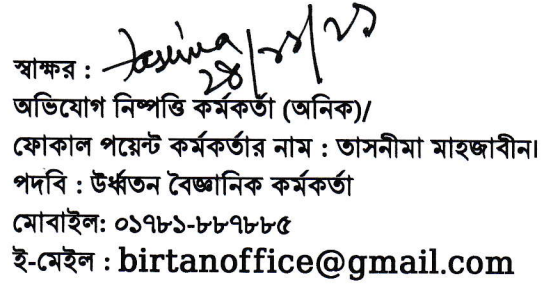 স্বাক্ষর : Tasnima
২৪/১১/২১
অভিযোগ নিষ্পত্তি কর্মকর্তা (অনিক)/
ফোকাল পয়েন্ট কর্মকর্তার নাম : তাসনীমা মাহজাবীন।
পদবি : উর্ধ্বতন বৈজ্ঞানিক কর্মকর্তা
মোবাইল: ০১৭৮১-৮৮৭৮৮৫
ই-মেইল : birtanoffice@gmail.com